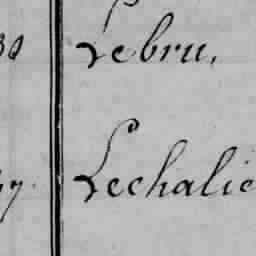 Lebru,
Lechalie